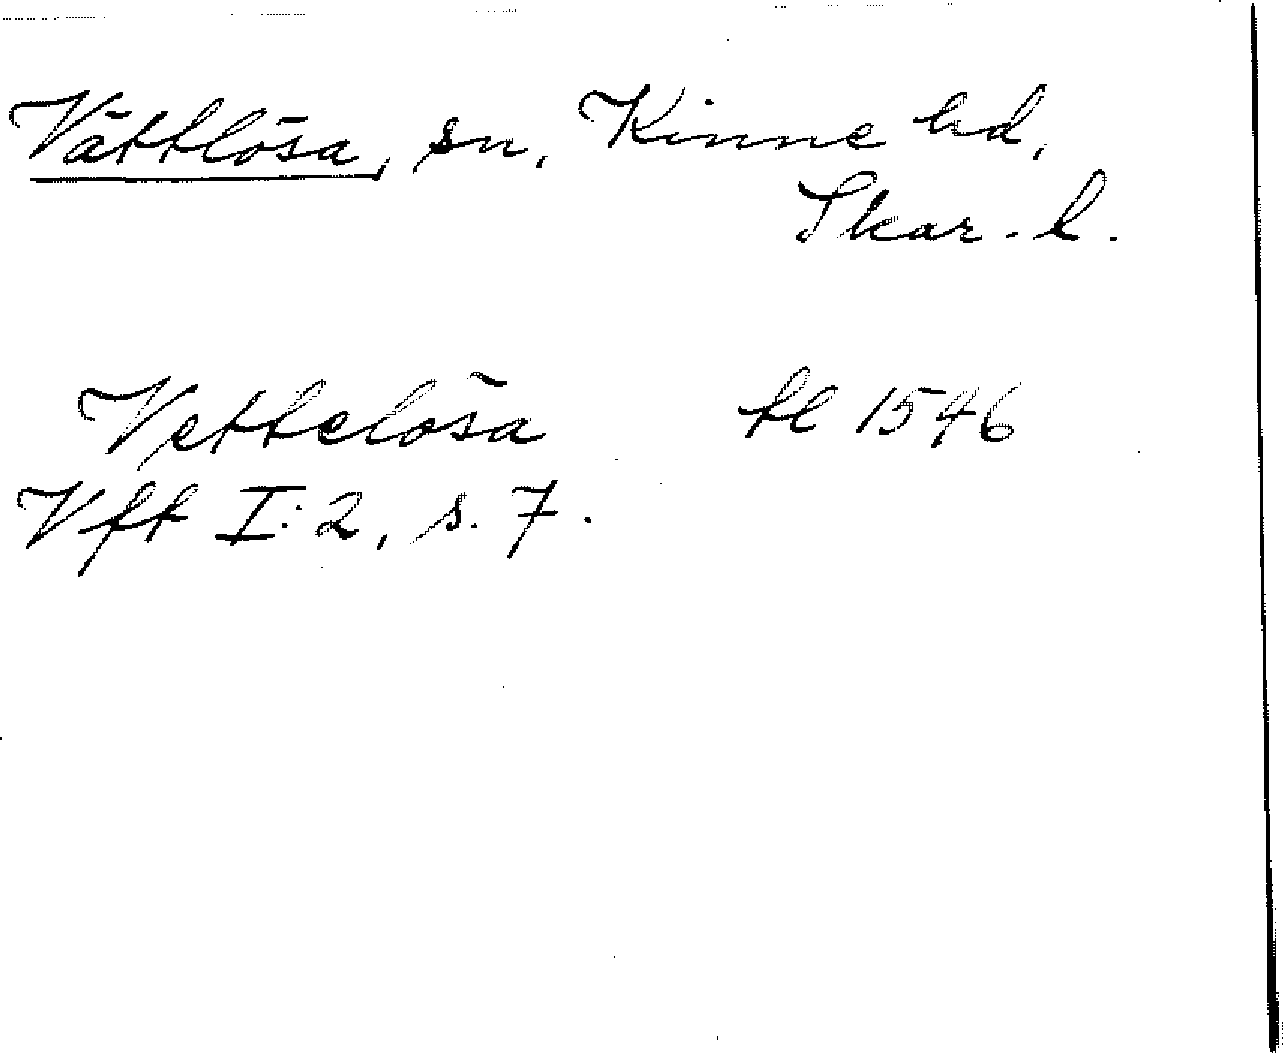 Vättlösa, sn, Kinne hd,
Skar. l.
Vettelösa tl 1546
Vft I:2, s. 7.